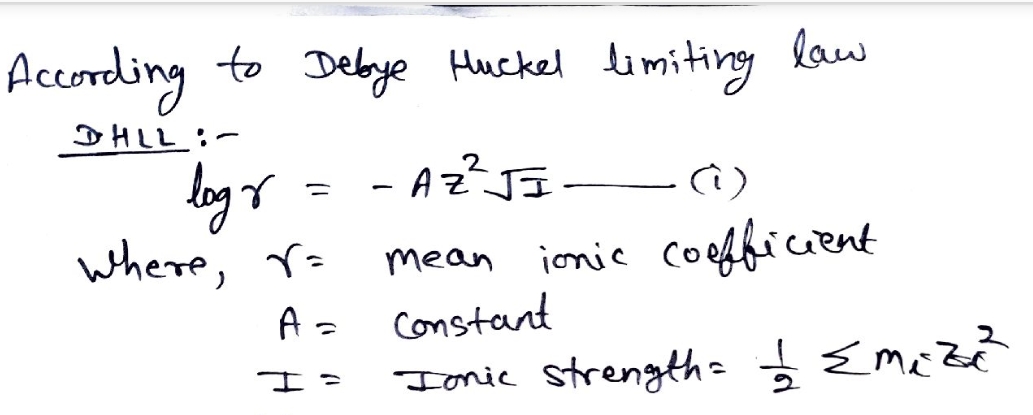 According to Debye Huckel limiting law
DHLL :-
log γ = - A Z² √I —— (i)
where, γ = mean ionic coefficient
A = constant
I = Ionic strength = 1/2 Σ mᵢ Zᵢ²